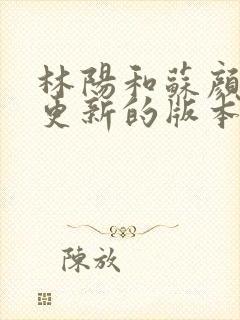 林陽和蘇顏
更新的版本
陳放